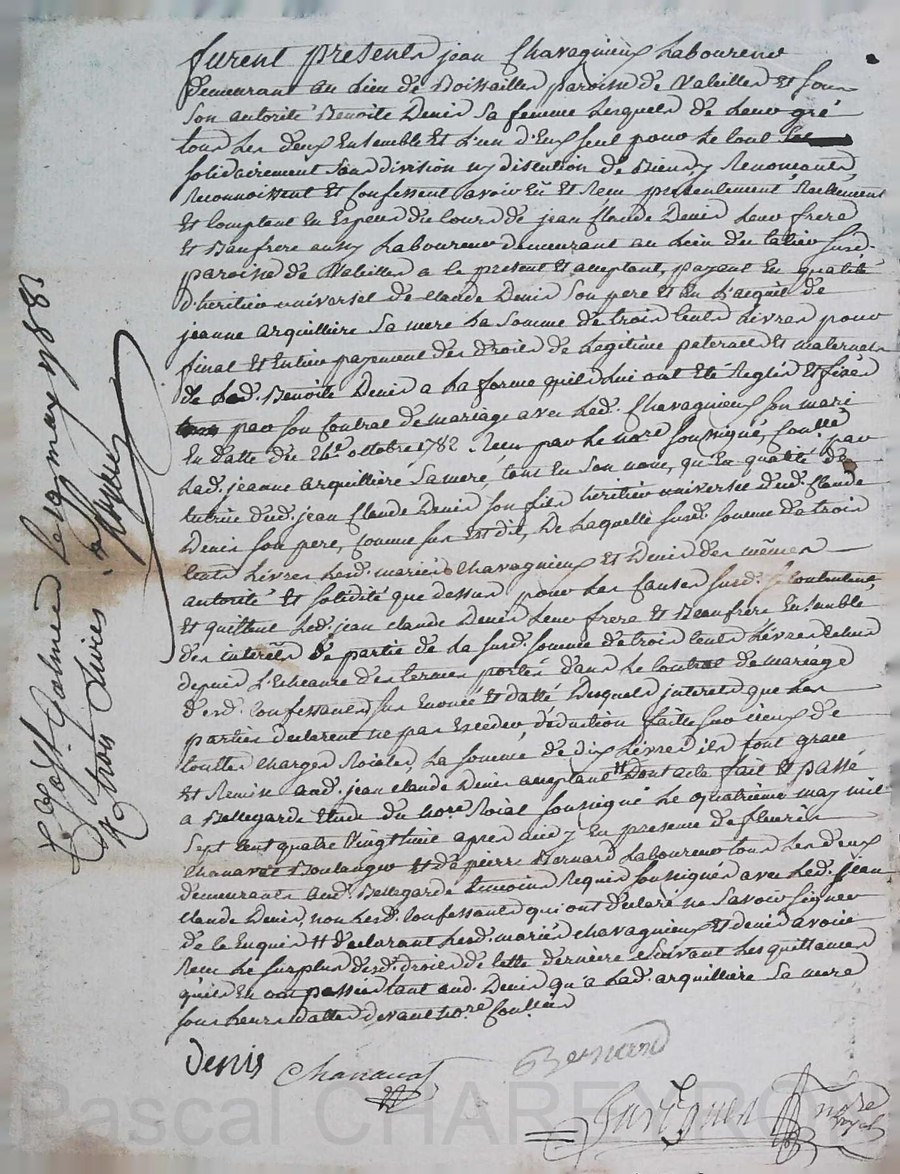 furent presents jean Chavagnieux Laboureur
demeurant au lieu de Boissailles paroisse de Valeilles et sous
son autorité Benoite Denis sa femme lesquels de leur gré
tous les deux Ensemble et L'un d'Eux seul pour le tout
solidairement sans division ny discution de Biens y Renonceants
Reconnoissent et Confessent avoir Eü et Reçu présentement Réellement
et Comptant en Especes du Cours de jean Claude Denis leur frere
et Beaufrere aussy Laboureur demeurant au lieu du susd.
paroisse de Valeilles a ce present et acceptant, payant En qualité
d'héritier universel de Claude Denis son pere et En L'acquit de
jeanne arquilliere sa mere La somme de trois Cents Livres pour
final et Entier payement des droits de Legitime paternels et maternels
de Lad. Benoite Denis a La forme qu'ils lui ont Eté Reglés et fixés
par son Contrat de mariage avec led. Chavagnieux son mari
En datte du 24e. octobre 1782 Reçu par le nore. soussigné, par
Lad. jeanne arquilliere sa mere, tant En son nom, qu'En qualité de
tutrice dud. jean Claude Denis son fils héritier universel dud. Claude
Denis son pere, Comme sus est dit, De Laquelle susd. somme de trois
Cents Livres Lesd. mariés Chavagnieux et Denis des mêmes
autorité et solidité que dessus pour les Causes susd. se Contentent
et quittent led. jean Claude Denis leur frere et Beaufrere Ensemble
des interets de partie de La susd. somme de trois Cents Livres
depuis L'Echeance des termes portés dans le Contrat de mariage
desd. Confessants sus Enoncé et datté Lesquels interets que les
parties declarent ne pas Exceder déduction faite sur iceux de
touttes Charges Roiales, La somme de dix Livres ils font grace
et Remise aud. jean Claude Denis acceptant Dont acte fait et passé
a Bellegarde Etude du nore. Roial soussigné Le quatrieme may mil
sept Cent quatre Vingt trois apres midy En presence de fleuris
Chanavat Boulanger et de pierre Bernard Laboureur tous les deux
demeurants aud. Bellegarde temoins Requis soussignés avec led. jean
Claude Denis, non lesd. Confessants qui ont declaré ne savoir signer
de ce Enquis declarant lesd. mariés Chavagnieux et denis avoir
Reçu le surplus desd. droits de Cette derniere suivant les quittances
qu'ils En ont passées tant aud. Denis qu'a Lad. arquilliere sa mere
sous leurs dattes devant nore.
Denis
Chanavat
Bernard
nore
royal
St Galmier le 19 may 1783
R trois Livres
Pascal CHAREYRON